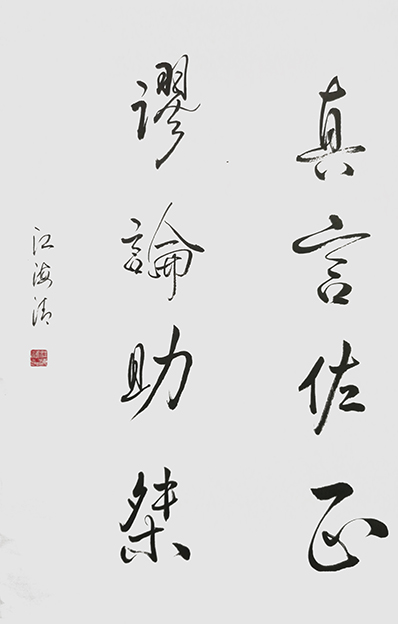 真言佐正
謬論助桀
江海清